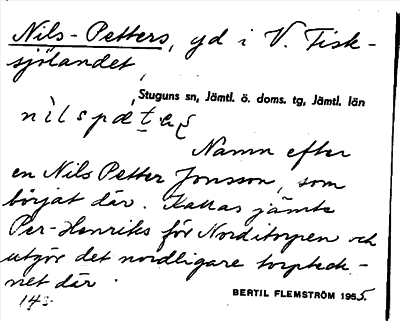 Nils-Petters, yd i V. Fisk-
sjölandet,
Stuguns sn, Jämtl. ö. doms. tg, Jämtl. län
Namn efter
en Nils Petter Jonsson, som
börjat där. Kallas jämte
Per-Henriks för Norditorpen och
utgör det nordligare torpteck-
net där.
BERTIL FLEMSTRÖM 1955.